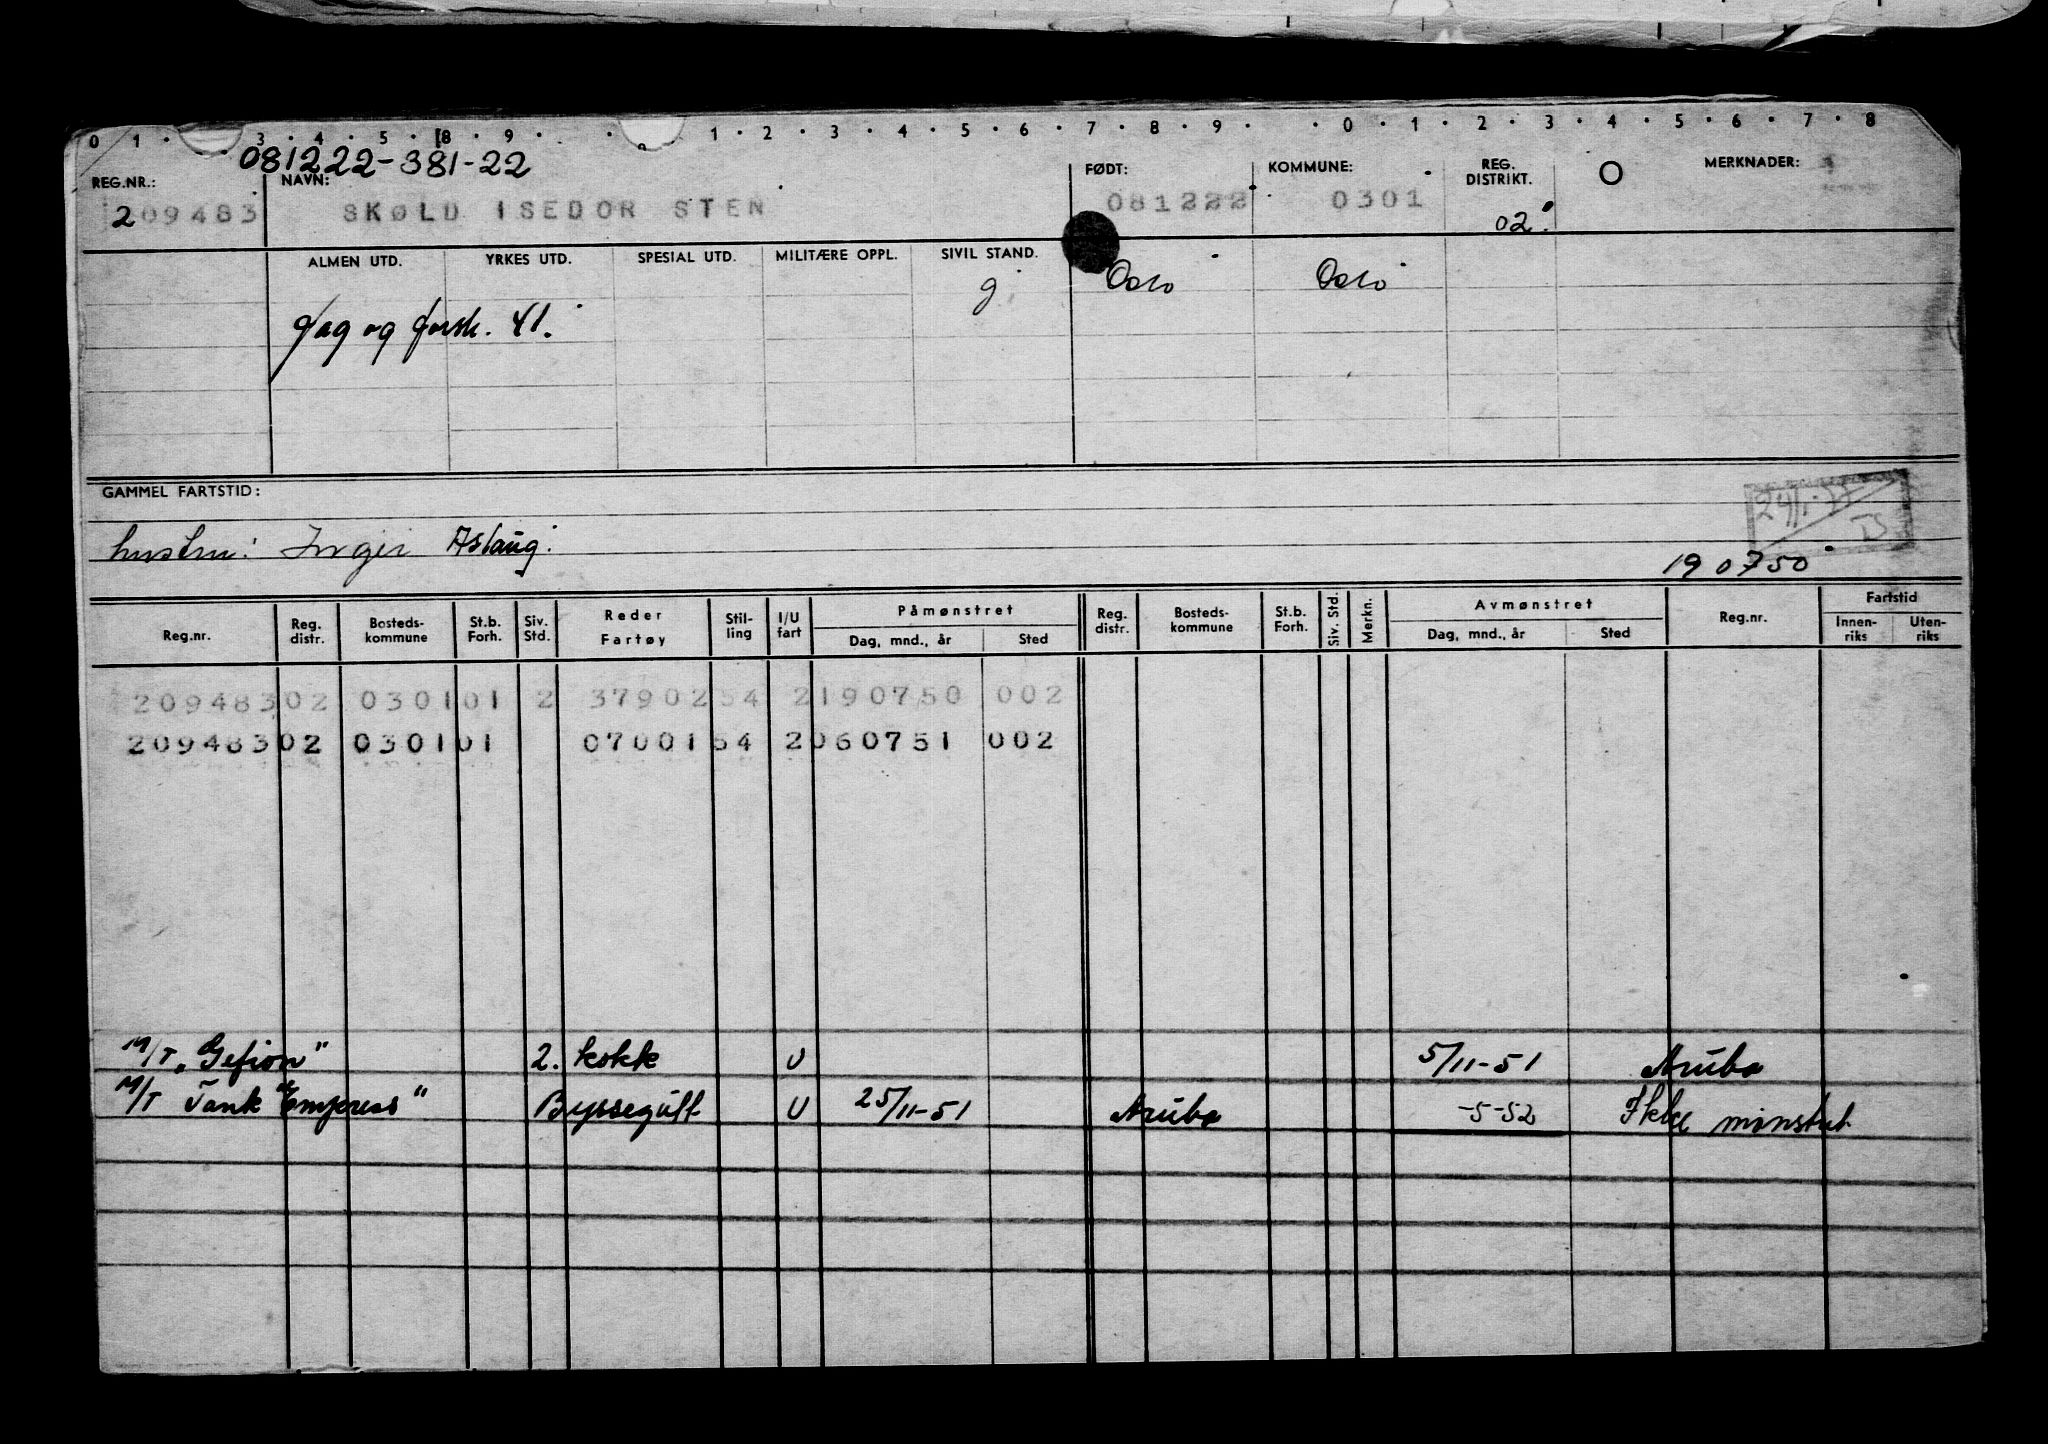 0 1 3 4 5 8 9 1 2 3 4 5 6 7 8 9 0 1 2 3 4 5 6 7 8
081222-381-22
REG.NR.: NAVN: FØDT: KOMMUNE: REG. DISTRIKT. O MERKNADER:
209483 SKØLD ISEDOR STEN 081222 0301 02
ALMEN UTD. YRKES UTD. SPESIAL UTD. MILITÆRE OPPL. SIVIL STAND.
g Oslo Oslo
fag og forsk. 41.
GAMMEL FARTSTID:
hustru: Inger Aslaug.
190750
Reg.nr. Reg. distr. Bosteds-kommune St.b. Forh. Siv. Std. Reder Fartøy Stil-ling I/U fart Påmønstret Dag, mnd., år Sted Reg. distr. Bosteds-kommune St.b. Forh. Siv. Std. Merkn. Avmønstret Dag, mnd., år Sted Reg.nr. Fartstid Innen-riks Uten-riks
209483 02 0301 01 2 37902 54 2 190750 002
209483 02 0301 01 07001 54 2 060751 002
M/T "Gefion" 2. kokk U 5/11-51 Aruba
M/T Tank "Empress" Byssegutt U 25/11-51 Aruba -5-52 Ikke mønstret